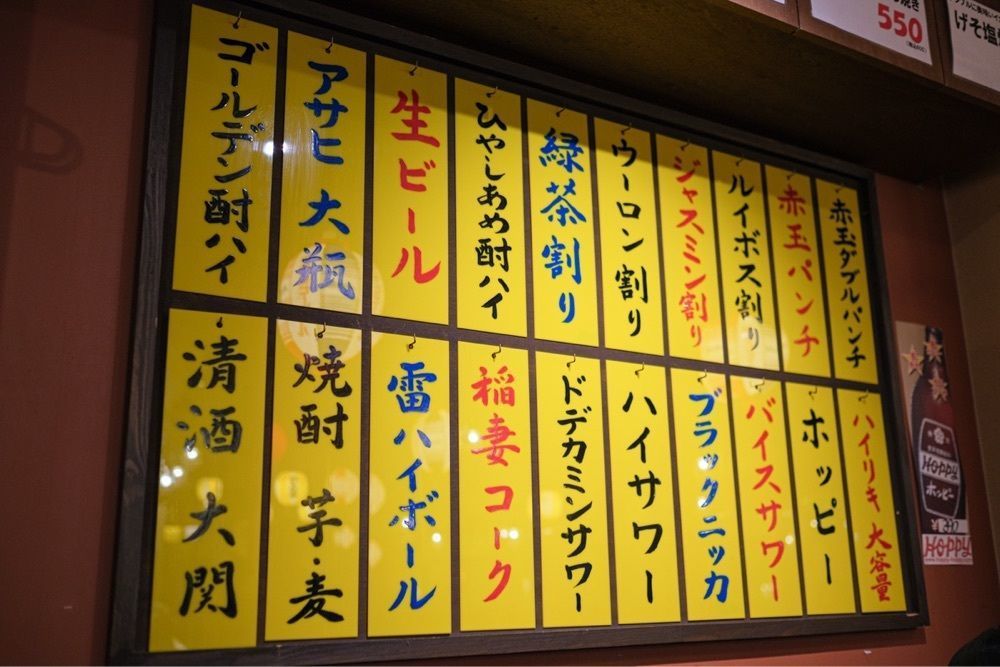 赤玉ダブルパンチ
赤玉パンチ
ルイボス割り
ジャスミン割り
ウーロン割り
緑茶割り
ひやしあめ酎ハイ
生ビール
アサヒ 大瓶
ゴールデン酎ハイ
ハイリキ 大容量
ホッピー
バイスサワー
ブラックニッカ
ハイサワー
ドデカミンサワー
稲妻コーク
雷ハイボール
焼酎 芋・麦
清酒 大関
550
げそ塩
HOPPY
ホッピー
HOPPY